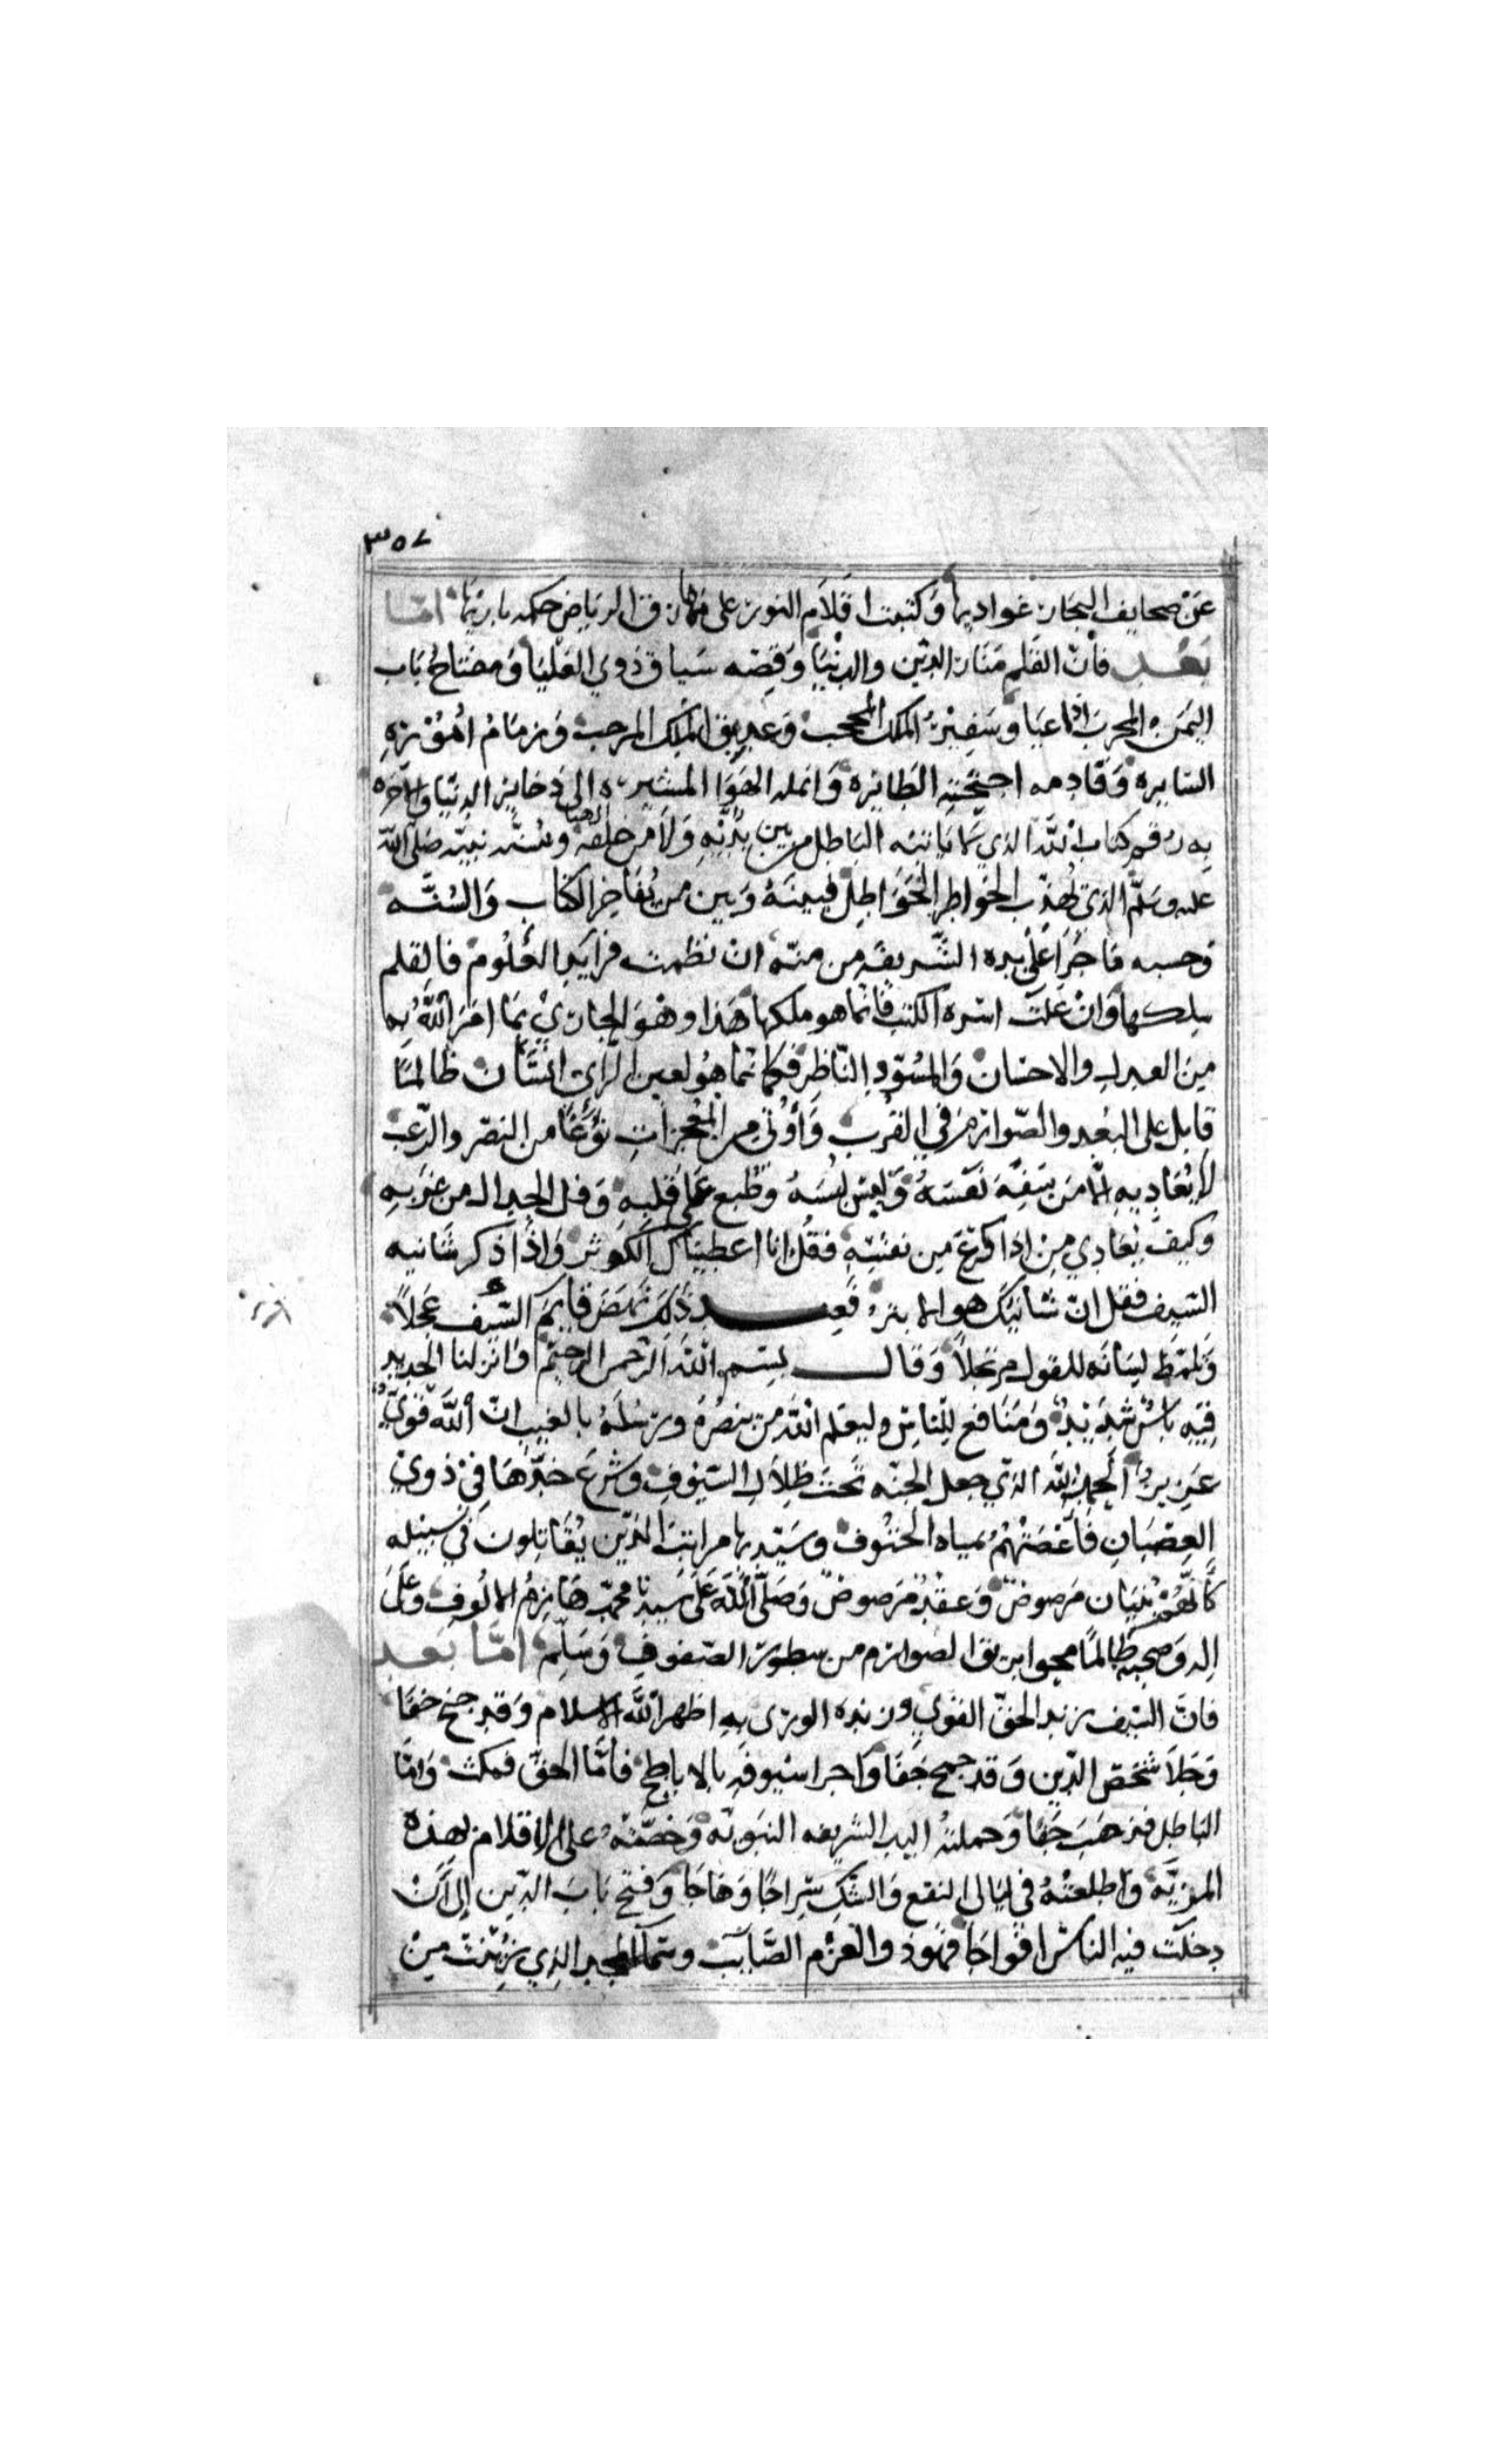 ٣٥٧
عن صحايف البحار غواديها وكتبت اقلام النور على مهارق الرياض حكمه باريها اما
بعد فان القلم منار الدين والدنيا وقصبه سباق ذوي العليا ومفتاح باب
اليمن المجرب اذا اعيا وسفير الملك المحجب وعذيق الملك المرجب وزمام اموره
السايره وقادمه اجنحته الطايره وانمله الهوا المشيره الى ذخاير الدنيا والاخره
به رقم كتاب الله الذي لا ياتيه الباطل من بين يديه ولا من خلفه وسنه نبيه صلى الله
عليه وسلم الذي تهذب الخواطر الخواطل فبينه وبين من يفاخر الكتاب والسنه
وحسبه ما جرا على يده الشريفه من منه ان نظمت فرايد العلوم فالقلم
سلكها وان علت اسره الكتب فانما هو ملكها هذا وهو الجاري بما امر الله به
من العدل والاحسان والمسود الناظر فكانما هو لعين الراي انسان طالما
قاتل على البعد والصوارم في القرب واوتي من المعجزات نوعا من النصر والرعب
لا يعاديه الا من سفه نفسه ولبس لبسه وطبع على قلبه وفل الجدال من غربه
وكيف يعادي من اذا كرع من نقسه فقل انا اعطيناك الكوثر واذا ذكر شانيه
السيف فقل ان شانيك هو الابتر فعند ذلك نهض قايم السيف عجلا
وتلمظ لسانه للقول مرتجلا وقال بسم الله الرحمن الرحيم وانزلنا الحديد
فيه باس شديد ومنافع للناس وليعلم الله من ينصره ورسله بالغيب ان الله قوي
عزيز الحمد لله الذي جعل الجنه تحت ظلال السيوف وشرع حدها في ذوي
العصيان فاغصتهم بمياه الحتوف وشيد بها مراتب الذين يقاتلون في سبيله
كانهم بنيان مرصوص وعقد مرصوص وصلى الله على سيدنا محمد هازم الالوف وعلى
اله وصحبه طالما محوا بريق الصوارم من سطور الصفوف وسلم اما بعد
فان السيف زند الحق القوي وزنده الوري به اظهر الله الاسلام وقد جنح خفا
وجلا شخص الدين وقد جمح جفا واجرا سيوفه بالاباطح فاما الحق فمكث واما
الباطل فذهب جفا وحملته اليد الشريفه النبويه وخصته على الاقلام بهذه
المزيه واطلعته في ليالي النقع والشك سراجا وهاجا وفتح باب الدين الى ان
دخلت فيه الناس افواجا فهو ذو العزم الثابت وسما المجد الذي زينت من